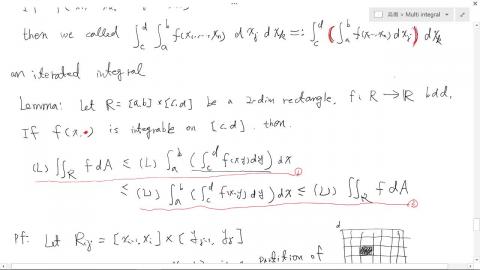 高微 > Multi integral
then we called ∫_c^d ∫_a^b f(x₁,…,xₙ) dx_j dx_k =: ∫_c^d (∫_a^b f(x₁…xₙ) dx_j) dx_k
an iterated integral
Lemma: Let R=[a,b]×[c,d] be a 2-dim rectangle, f: R → ℝ bdd.
If f(x,·) is integrable on [c,d], then
(L) ∬_R f dA ≤ (L) ∫_a^b (∫_c^d f(x,y)dy) dx ①
≤ (U) ∫_a^b (∫_c^d f(x,y) dy) dx ≤ (U) ∬_R f dA ②
pf: Let R_ij = [x_{i-1}, x_i] × [y_{j-1}, y_j]
d
partition of